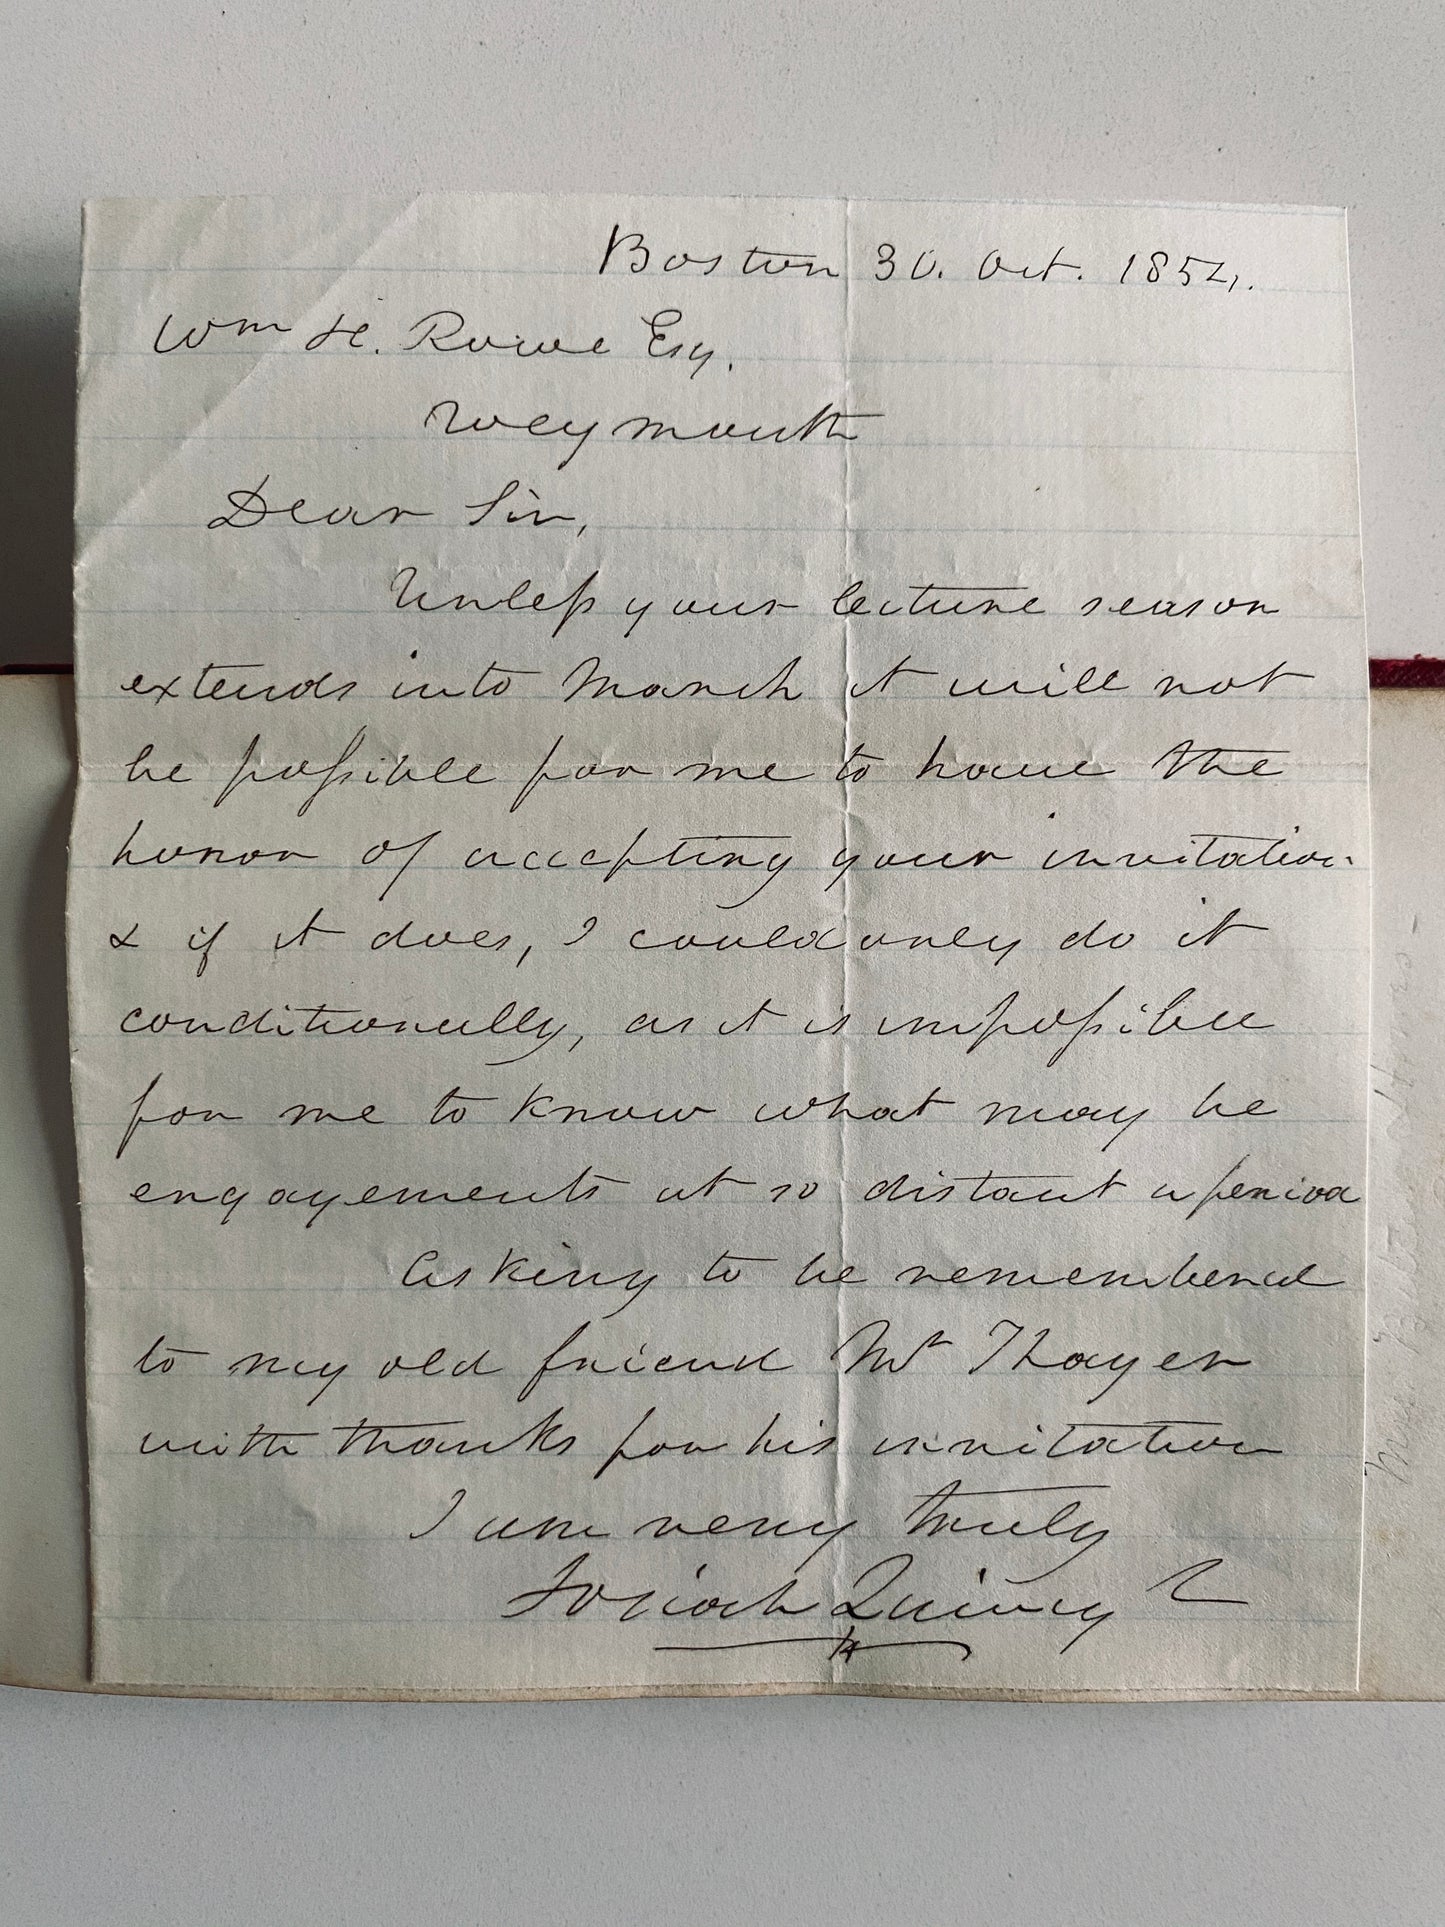 Boston 30. Oct. 1854.
Wm H. Rowe Esq.
Weymouth
Dear Sir,
Unleſs your lecture season
extends into March it will not
be poſsible for me to have the
honor of accepting your invitation
& if it does, I could only do it
conditionally, as it is impoſsible
for me to know what may be
engagements at so distant a period
Asking to be remembered
to my old friend Mr Thayer
with thanks for his invitation
I am very truly
Josiah Quincy
Jr